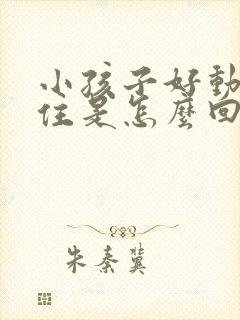 小孩子好動
住是怎麼回
朱秦冀